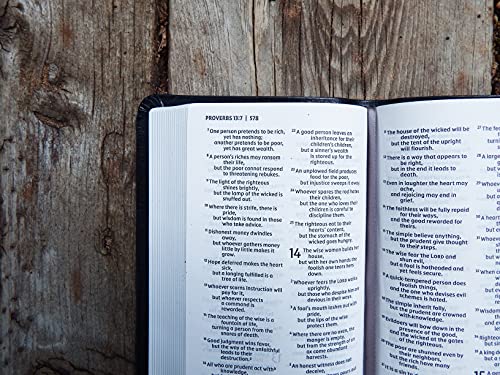 PROVERBS 13:7 | 578
7 One person pretends to be rich,
yet has nothing;
another pretends to be poor,
yet has great wealth.
8 A person's riches may ransom
their life,
but the poor cannot respond
to threatening rebukes.
9 The light of the righteous
shines brightly,
but the lamp of the wicked is
snuffed out.
10 Where there is strife, there is
pride,
but wisdom is found in those
who take advice.
11 Dishonest money dwindles
away,
but whoever gathers money
little by little makes it
grow.
12 Hope deferred makes the heart
sick,
but a longing fulfilled is a
tree of life.
13 Whoever scorns instruction will
pay for it,
but whoever respects
a command is
rewarded.
14 The teaching of the wise is a
fountain of life,
turning a person from the
snares of death.
15 Good judgment wins favor,
but the way of the unfaithful
leads to their
destruction.
16 All who are prudent act with
knowledge,
22 A good person leaves an
inheritance for their
children's children,
but a sinner's wealth
is stored up for the
righteous.
23 An unplowed field produces
food for the poor,
but injustice sweeps it away.
24 Whoever spares the rod hates
their children,
but the one who loves their
children is careful to
discipline them.
25 The righteous eat to their
hearts' content,
but the stomach of the
wicked goes hungry.
14 The wise woman builds her
house,
but with her own hands the
foolish one tears hers
down.
2 Whoever fears the LORD walks
uprightly,
but those who despise him are
devious in their ways.
3 A fool's mouth lashes out with
pride,
but the lips of the wise
protect them.
4 Where there are no oxen, the
manger is empty,
but from the strength of an
ox come abundant
harvests.
5 An honest witness does not
deceive,
11 The house of the wicked will be
destroyed,
but the tent of the upright
will flourish.
12 There is a way that appears to
be right,
but in the end it leads to
death.
13 Even in laughter the heart may
ache,
and rejoicing may end in
grief.
14 The faithless will be fully repaid
for their ways,
and the good rewarded for
theirs.
15 The simple believe anything,
but the prudent give thought
to their steps.
16 The wise fear the LORD and
shun evil,
but a fool is hotheaded and
yet feels secure.
17 A quick-tempered person does
foolish things,
and the one who devises evil
schemes is hated.
18 The simple inherit folly,
but the prudent are crowned
with knowledge.
19 Evildoers will bow down in the
presence of the good,
and the wicked at the gates
of the righteous.
20 The poor are shunned even by
their neighbors,
but the rich have many
friends.
21 It is a sin